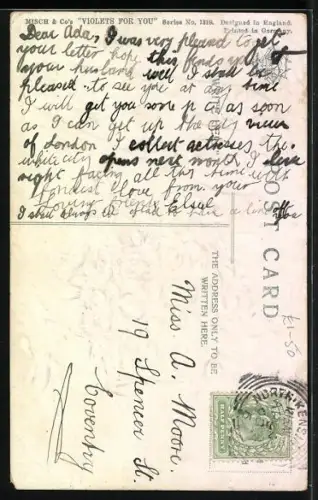 MISCH & Co's "VIOLETS FOR YOU" Series No. 1310. Designed in England.
Printed in Germany.
Dear Ada, I was very pleased to get
your letter hope this finds you &
your husband well I shall be
pleased to see you at any time
I will get you some p c as soon
as I can get up the city views
of London I collect actresses, the
white city opens next month, I live
right facing all this time with
fondest love from your
loving friend Elsie
I shall always be glad to have a line
POST CARD
THE ADDRESS ONLY TO BE
WRITTEN HERE.
Miss A. Moore.
19 Spencer St.
Coventry
£1-50
NORTH KENSI
HALFPENNY